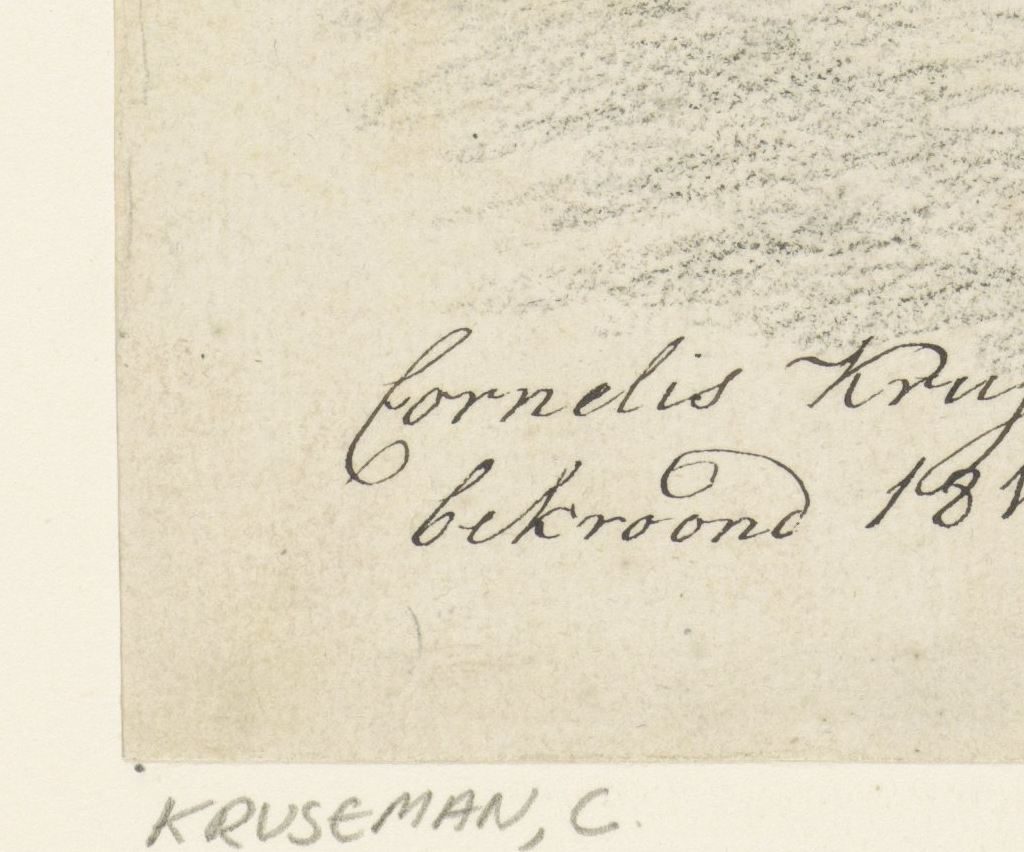 Cornelis Kruf
bekroond 181
KRUSEMAN, C.